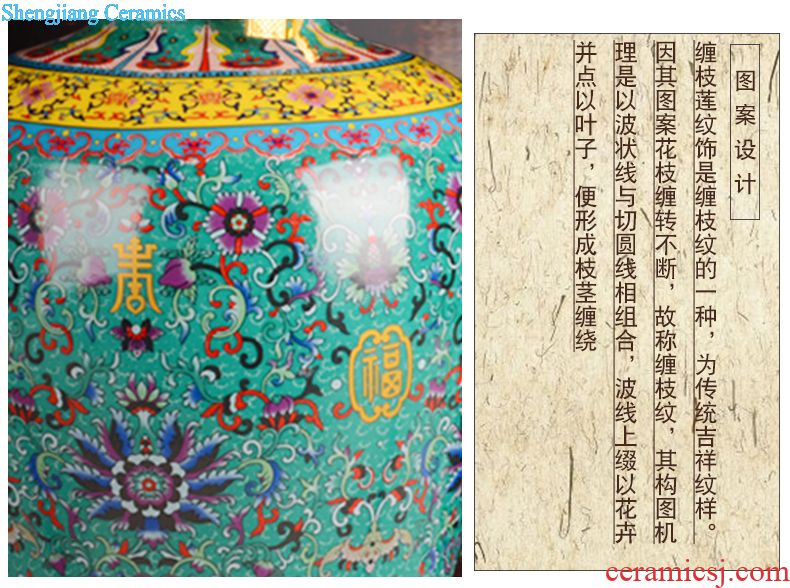 Shengjiang Ceramics
图案设计
缠枝莲纹饰是缠枝纹的一种，为传统吉祥纹样。
因其图案花枝缠转不断，故称缠枝纹，其构图机
理是以波状线与切圆线相组合，波线上缀以花卉
并点以叶子，便形成枝茎缠绕
福
ceramicsj.com